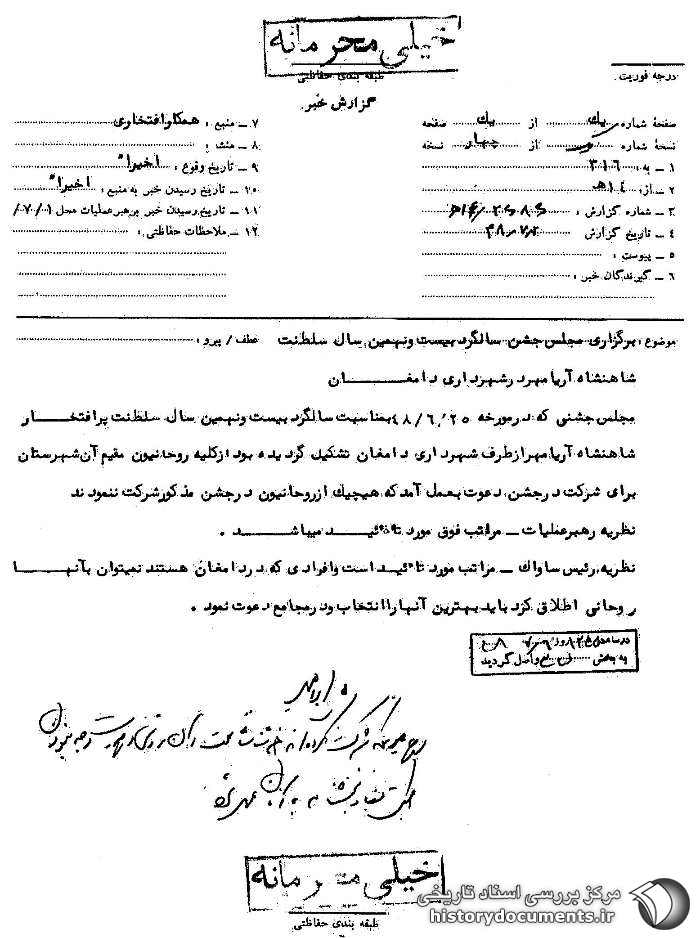 خیلی محرمانه
طبقه بندی حفاظتی
درجه فوریت :
گزارش خبر
صفحه شماره یک از یک صفحه
نسخه شماره از چهار نسخه
۱ ـ به : ۳۱۶
۲ ـ از : ۱۴ه‍
۳ ـ شماره گزارش :
۴ ـ تاریخ گزارش
۵ ـ پیوست :
۶ ـ گیرندگان خبر :
۷ ـ منبع : همکار افتخاری
۸ ـ منشاء :
۹ ـ تاریخ وقوع : اخیرا"
۱۰ ـ تاریخ رسیدن خبر به منبع : اخیرا"
۱۱ ـ تاریخ رسیدن خبر به رهبر عملیات محل
۱۲ ـ ملاحظات حفاظتی :
موضوع : برگزاری مجلس جشن سالگرد بیست ونهمین سال سلطنت عطف / پیرو :
شاهنشاه آریا مهر در شهرداری دامغــــــان
مجلس جشنی که در مورخه ۴۸/۶/۲۵ بمناسبت سالگرد بیست ونهمین سال سلطنت پرافتخار
شاهنشاه آریا مهر از طرف شهرداری دامغان تشکیل گردیده بود از کلیه روحانیون مقیم آن شهرستان
برای شرکت در جشن دعوت بعمل آمد که هیچیک از روحانیون در جشن مذکور شرکت ننمودند
نظریه رهبر عملیات ـ مراتب فوق مورد تائیـــد میباشـــد .
نظریه رئیس ساواک ـ مراتب مورد تائید است وافرادی که در دامغان هستند نمیتوان بآنهــــا
روحانی اطلاق کرد باید بهترین آنها را انتخاب ودر مجامع دعوت نمود .
در ساعت روز
به بخش واصل گردید
خیلی محرمانه
طبقه بندی حفاظتی
مرکز بررسی اسناد تاریخی
historydocuments.ir